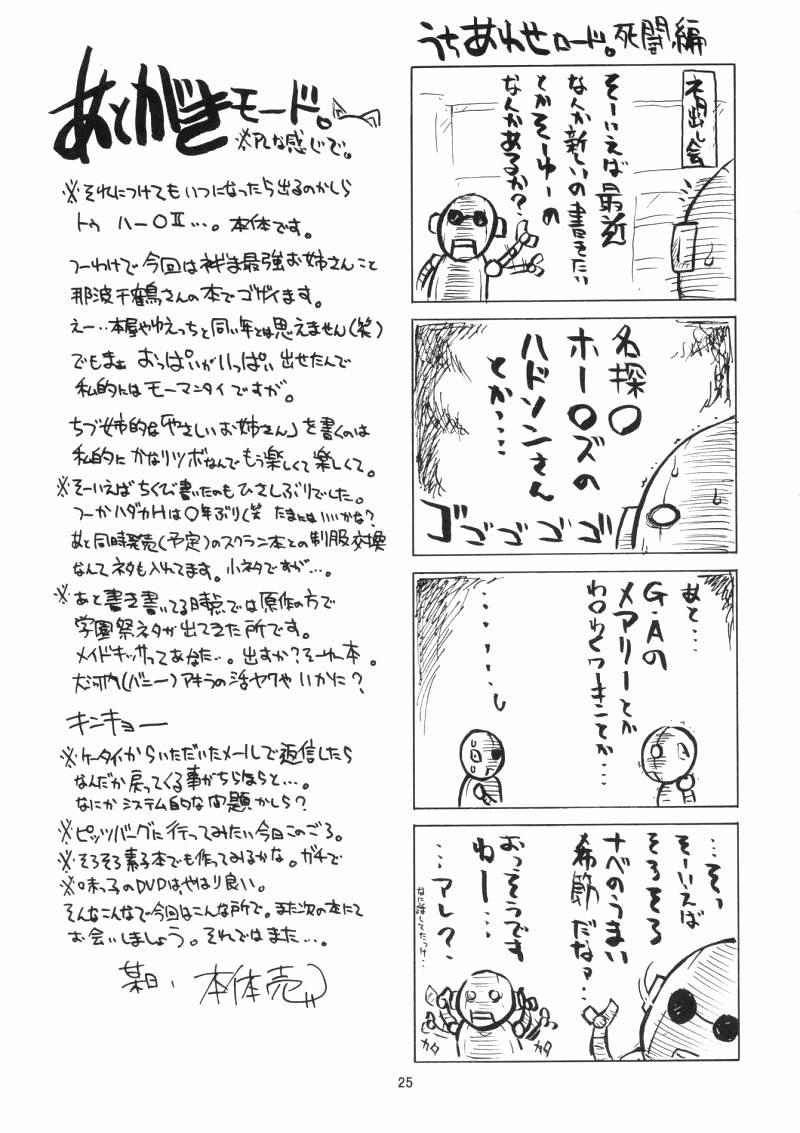 うちあわせロード。死闘編
ネタ出し会
そーいえば最近
なんか新しいの書きたい
とかそーゆーの
なんかあるか?
名探〇
ホー〇ズの
ハドソンさん
とか‥‥
ゴゴゴゴゴ
あと‥‥
G・Aの
メアリーとか
わ〇わくワーキンとか‥‥
‥そっ
そーいえば
そろそろ
ナベのうまい
季節だなァ‥‥
おっそうです
ねー‥‥
‥アレ?
なに話してたっけ‥‥
カタ
カタ
あとがきモード。
※PLな感じで。
※それにつけてもいつになったら出るのかしら
トゥ ハー〇Ⅱ‥‥。本体です。
つーわけで今回はネギま最強お姉さんこと
那波千鶴さんの本でゴザイます。
えー‥本屋やゆえっちと同い年とは思えません(笑)
でもまぁ おっぱいがいっぱい出せたんで
私的にはモーマンタイですが。
ちづ姉的な「やさしいお姉さん」を書くのは
私的にかなりツボなんでもう楽しくて楽しくて。
※そーいえばちくび書いたのもひさしぶりでした。
つーかハダカHは〇年ぶり(笑 たまにはいいかな?
あと同時発売(予定)のスクラン本との制服交換
なんてネタも入れてます。小ネタですが‥‥。
※あと書き書いてる時点では原作の方で
学園祭ネタが出てきた所です。
メイドキッサってあなた‥。出すか?そーゆー本。
大河内(バニー)アキラの活ヤクやいかに?
キンキョー
※ケータイからいただいたメールで返信したら
なんだか戻ってくる事がちらほらと‥‥。
なにかシステム的な問題かしら?
※ピッツバーグに行ってみたい今日このごろ。
※そろそろ素子本でも作ってみるかな。ガチで
※味っ子のDVDはやはり良い。
そんなこんなで今回はこんな所で。また次の本にて
お会いしましょう。それではまた‥‥。
某日、本体売
25